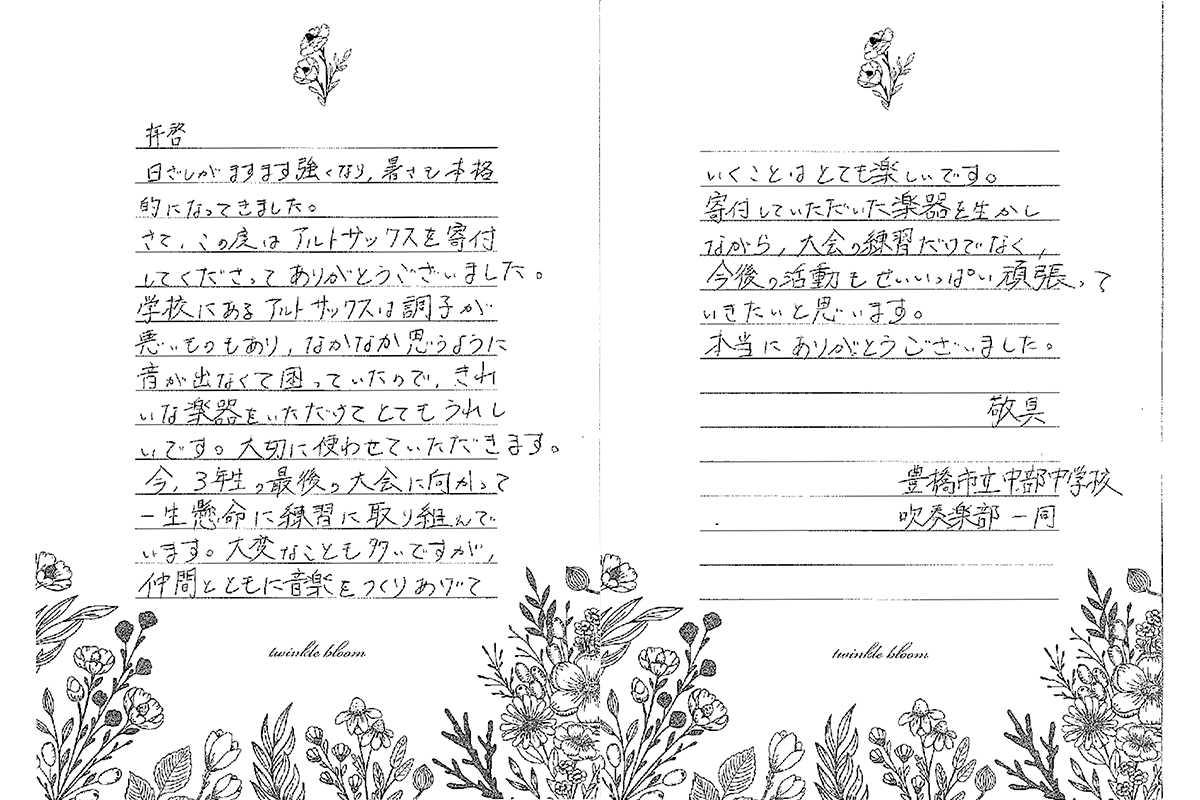 拝啓
日ざしがますます強くなり、暑さも本格
的になってきました。
さて、この度はアルトサックスを寄付
してくださってありがとうございました。
学校にあるアルトサックスは調子が
悪いものもあり、なかなか思うように
音が出なくて困っていたので、きれ
いな楽器をいただけてとてもうれし
いです。大切に使わせていただきます。
今、3年生の最後の大会に向かって
一生懸命に練習に取り組んで
います。大変なことも多いですが、
仲間とともに音楽をつくりあげて
twinkle bloom
いくことはとても楽しいです。
寄付していただいた楽器を生かし
ながら、大会の練習だけでなく、
今後の活動もせいいっぱい頑張って
いきたいと思います。
本当にありがとうございました。
敬具
豊橋市立中部中学校
吹奏楽部一同
twinkle bloom